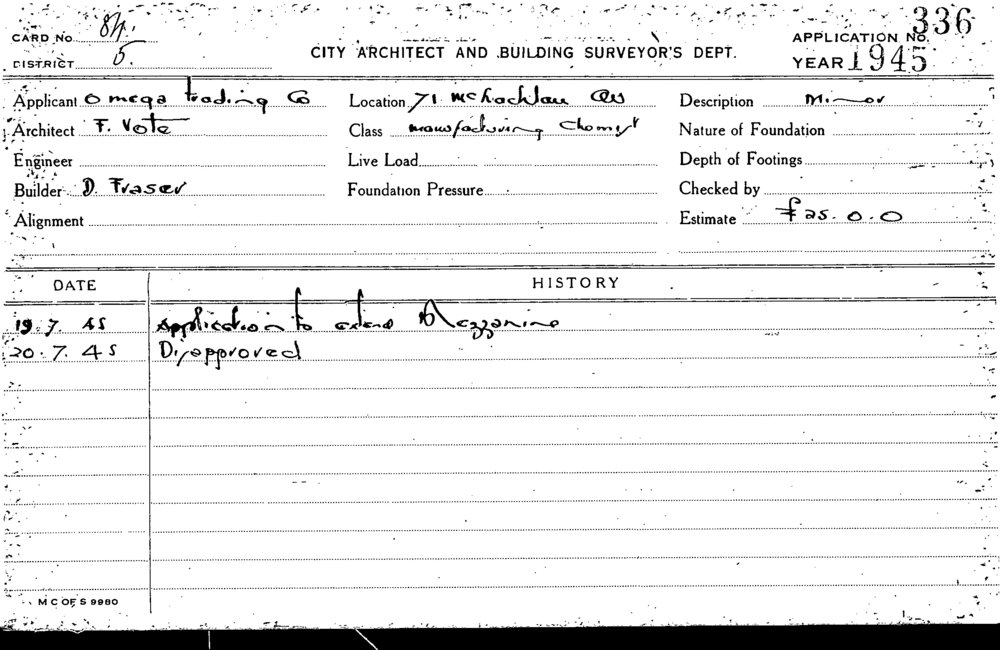 CARD NO. 84.
DISTRICT 5.
CITY ARCHITECT AND BUILDING SURVEYOR'S DEPT.
APPLICATION NO. 336
YEAR 1945
Applicant Omega Trading Co Location 71 McLachlan Av Description Minor
Architect F. Vote Class manufacturing Chemist Nature of Foundation
Engineer Live Load Depth of Footings
Builder D. Fraser Foundation Pressure Checked by
Alignment Estimate £25.0.0
DATE HISTORY
19.7.45 Application to extend Mezzanine
20.7.45 Disapproved
M C OF S 9980